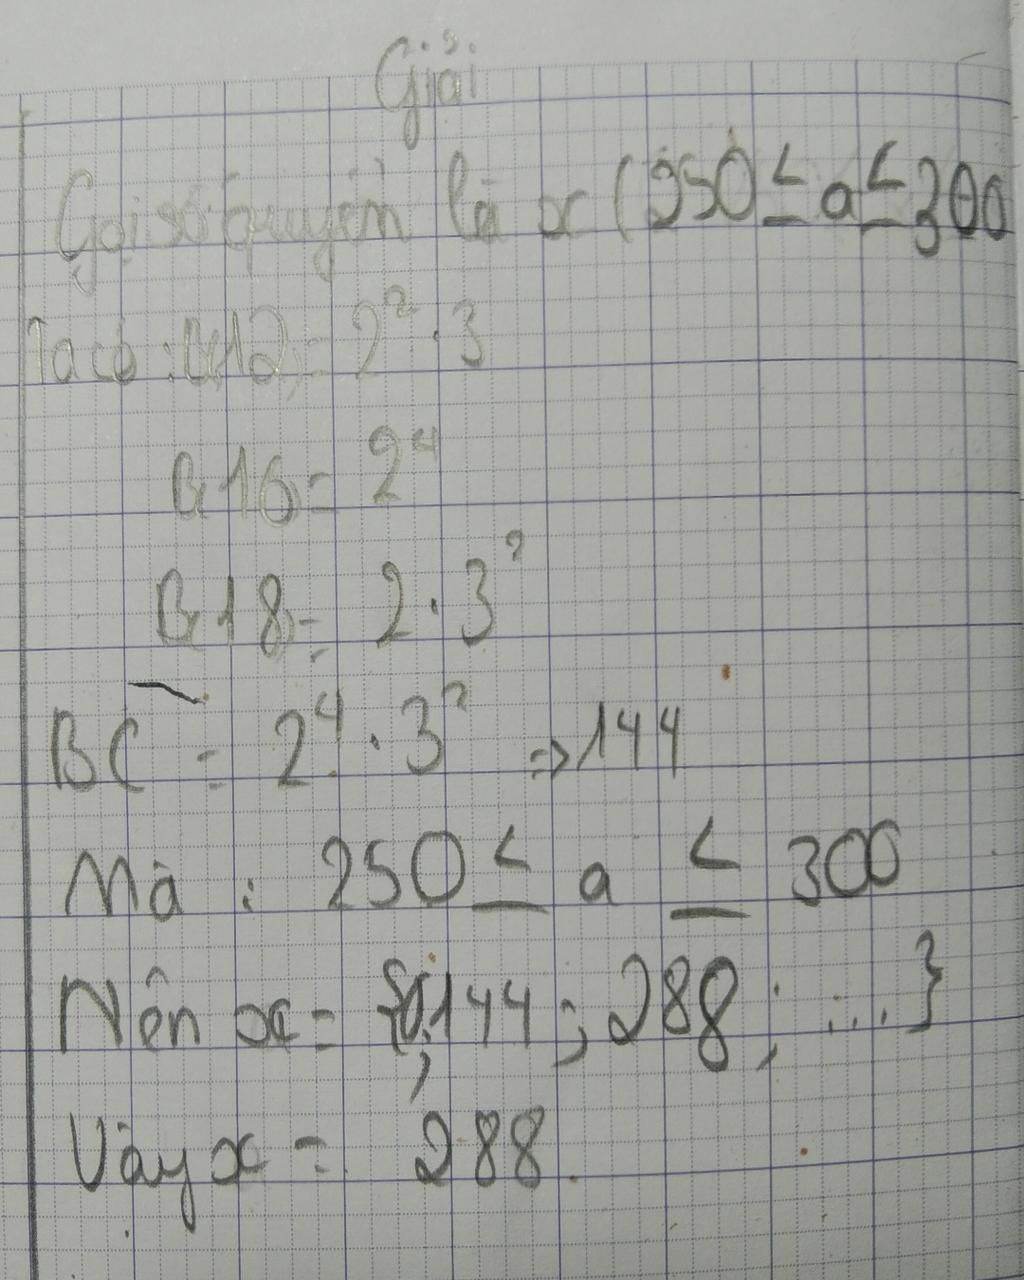 Giải
Gọi số quyển là x (350 ≤ a ≤ 300
Ta có: B(12) = 2² . 3
B(16) = 2⁴
B(18) = 2 . 3²
BC = 2⁴ . 3² => 144
Mà : 250 ≤ a ≤ 300
Nên x = {0; 144 ; 288 ; ... }
Vậy x = 288.